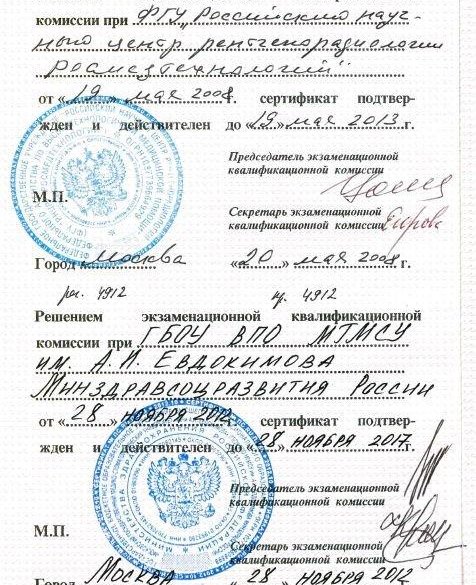 комиссии при ФГУ "Российский науч-
ный центр рентгенорадиологии
Росмедтехнологий"
от «19» мая 2008г. сертификат подтвер-
жден и действителен до «19» мая 2013г.
Председатель экзаменационной
квалификационной комиссии
М.П.
Секретарь экзаменационной
квалификационной комиссии
Город Москва «20» мая 2008г.
рег. 4912 4912
Решением экзаменационной квалификационной
комиссии при ГБОУ ВПО МГМСУ
им. А.И. Евдокимова
Минздравсоцразвития России
от «28» ноября 2012г. сертификат подтвер-
жден и действителен до «28» ноября 2017г.
Председатель экзаменационной
квалификационной комиссии
М.П.
Секретарь экзаменационной
квалификационной комиссии
Город Москва «28» ноября 2012